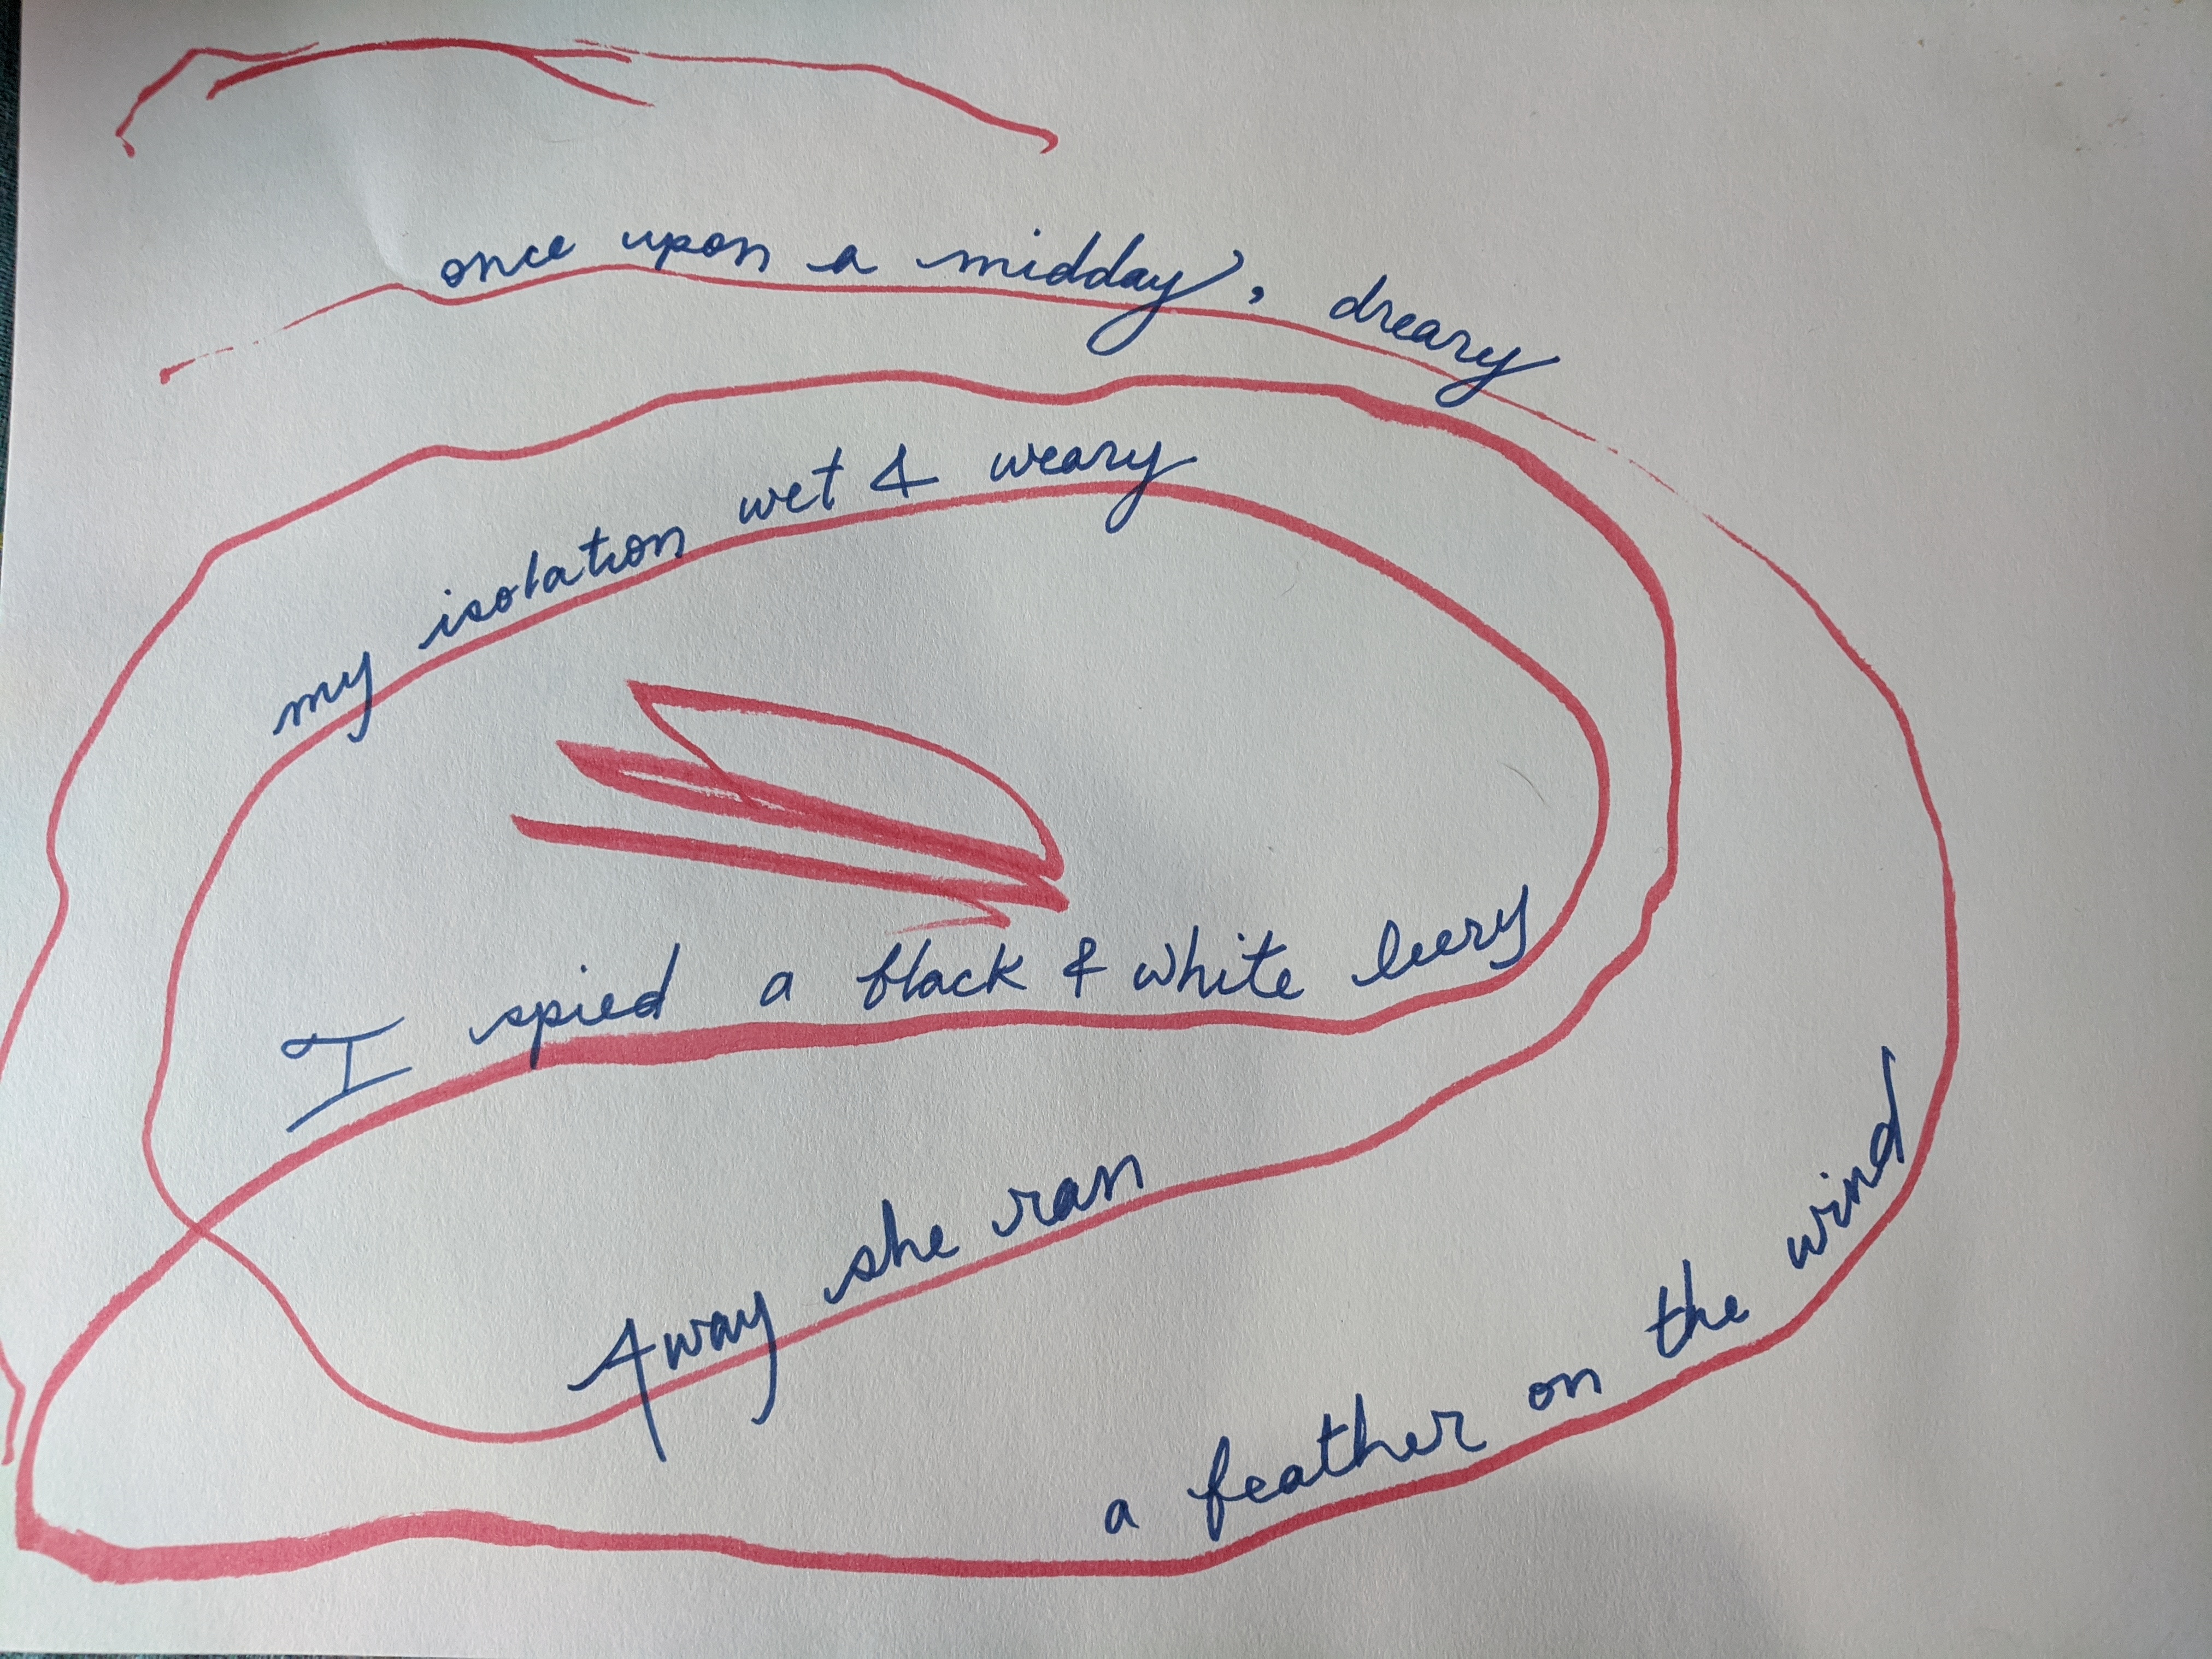 once upon a midday, dreary
my isolation wet & weary
I spied a black & white leery
Away she ran
a feather on the wind